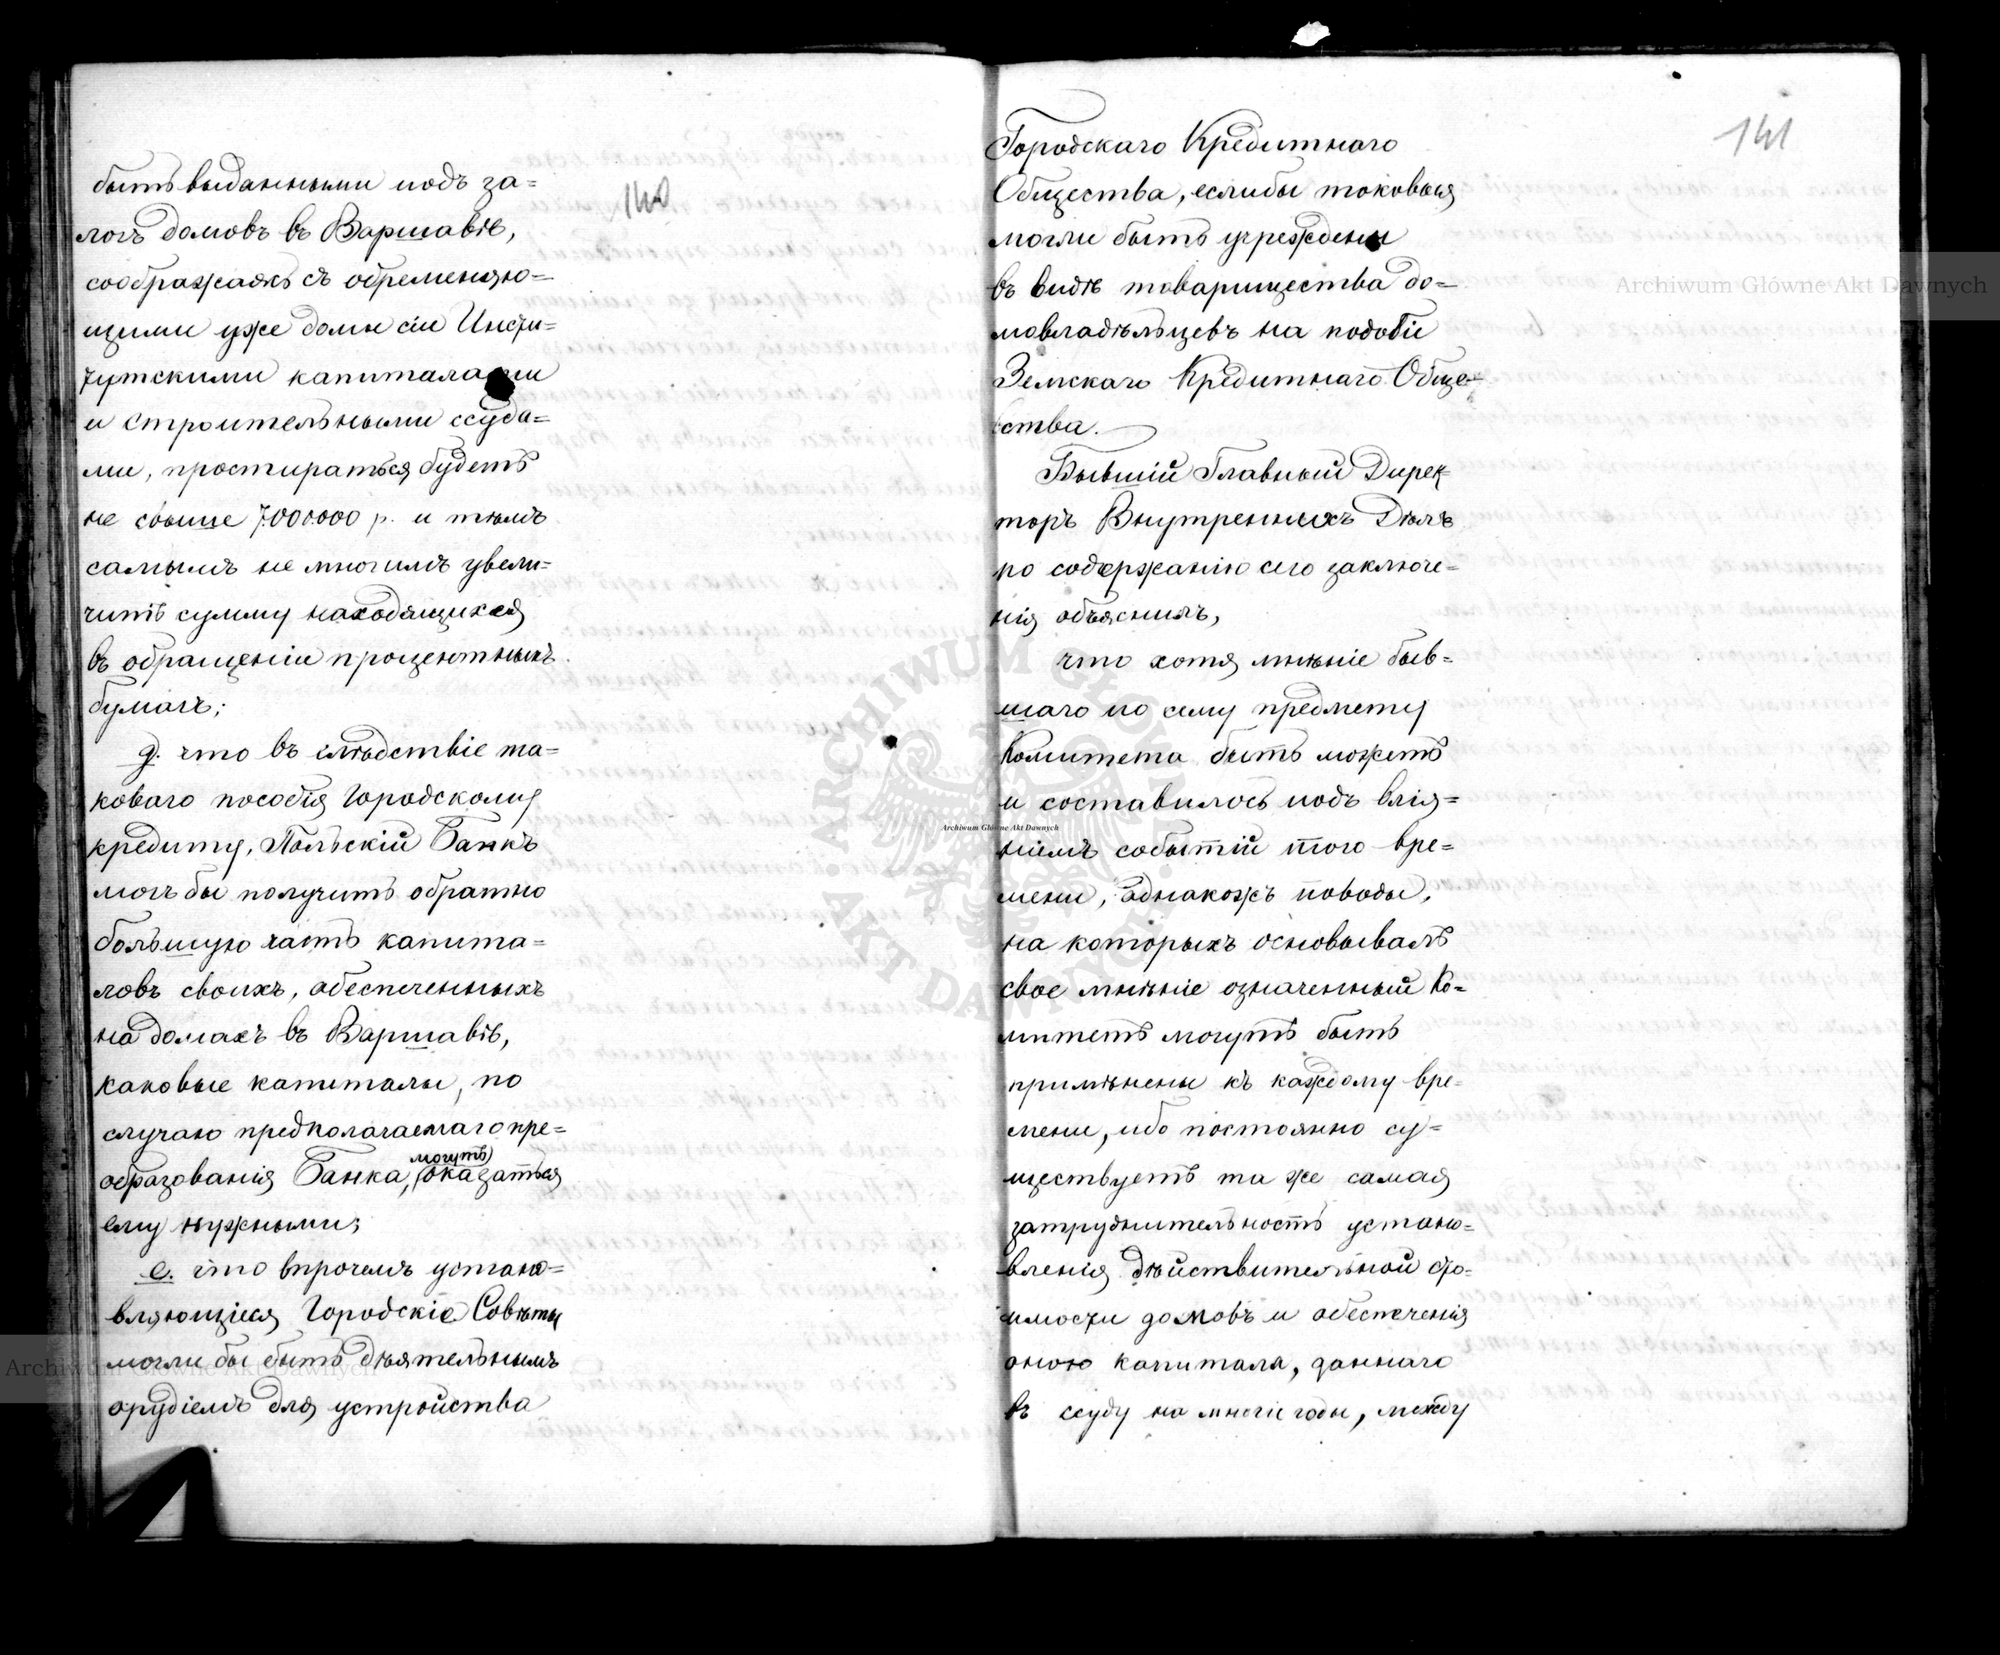 140
быть выданными подъ за=
логъ домовъ въ Варшавѣ,
соображаясь съ обременяю=
щими уже домы сіи Инсти=
тутскими капиталами
и строительными ссуда=
ми, простираться будетъ
не свыше 7.000.000 р. и тѣмъ
самымъ не многимъ увели=
читъ сумму находящихся
въ обращеніи процентныхъ
бумагъ;
д. что въ слѣдствіе та=
коваго пособія Городскому
кредиту, Польскій Банкъ
могъ бы получить обратно
большую часть капита=
ловъ своихъ, обеспеченныхъ
на домахъ въ Варшавѣ,
каковые капиталы, по
случаю предполагаемаго пре=
образованія Банка, могутъ оказаться
ему нужными;
е. что впрочемъ устано=
вляющіеся Городскіе Совѣты
могли бы быть дѣятельнымъ
орудіемъ для устройства
141
Городскаго Кредитнаго
Общества, еслибы таковыя
могли быть учреждены
въ видѣ товарищества до=
мовладѣльцевъ на подобіе
Земскаго Кредитнаго Обще=
ства.
Бывшій Главный Дирек=
торъ Внутреннихъ Дѣлъ
по содержанію сего заключе=
нія объяснилъ,
что хотя мнѣніе быв=
шаго по сему предмету
Комитета быть можетъ
и составилось подъ влія=
ніемъ событій того вре=
мени, однакожъ поводы,
на которыхъ основывалъ
свое мнѣніе означенный Ко=
митетъ могутъ быть
примѣнены къ каждому вре=
мени, ибо постоянно су=
ществуетъ та же самая
затруднительность устано=
вленія дѣйствительной сто=
имости домовъ и обеспеченія
оною капитала, даннаго
въ ссуду на многіе годы, между
Archiwum Główne Akt Dawnych
Archiwum Główne Akt Dawnych
Archiwum Główne Akt Dawnych
ARCHIWUM GŁÓWNE AKT DAWNYCH